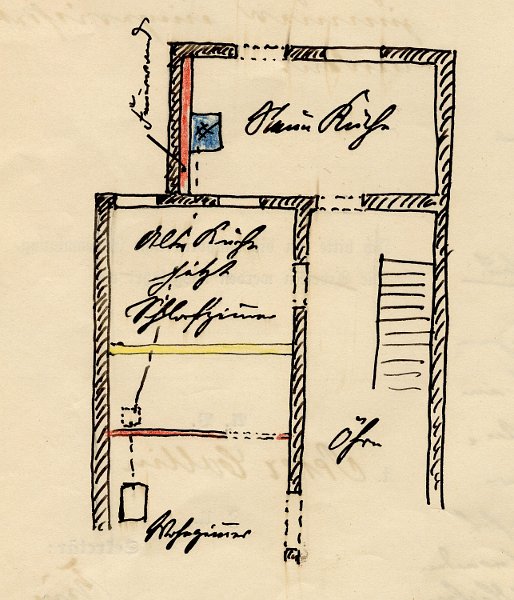 Feuerwand
Neue Küche
Alte Küche
jetzt
Schlafzimmer
Öhrn
Wohnzimmer